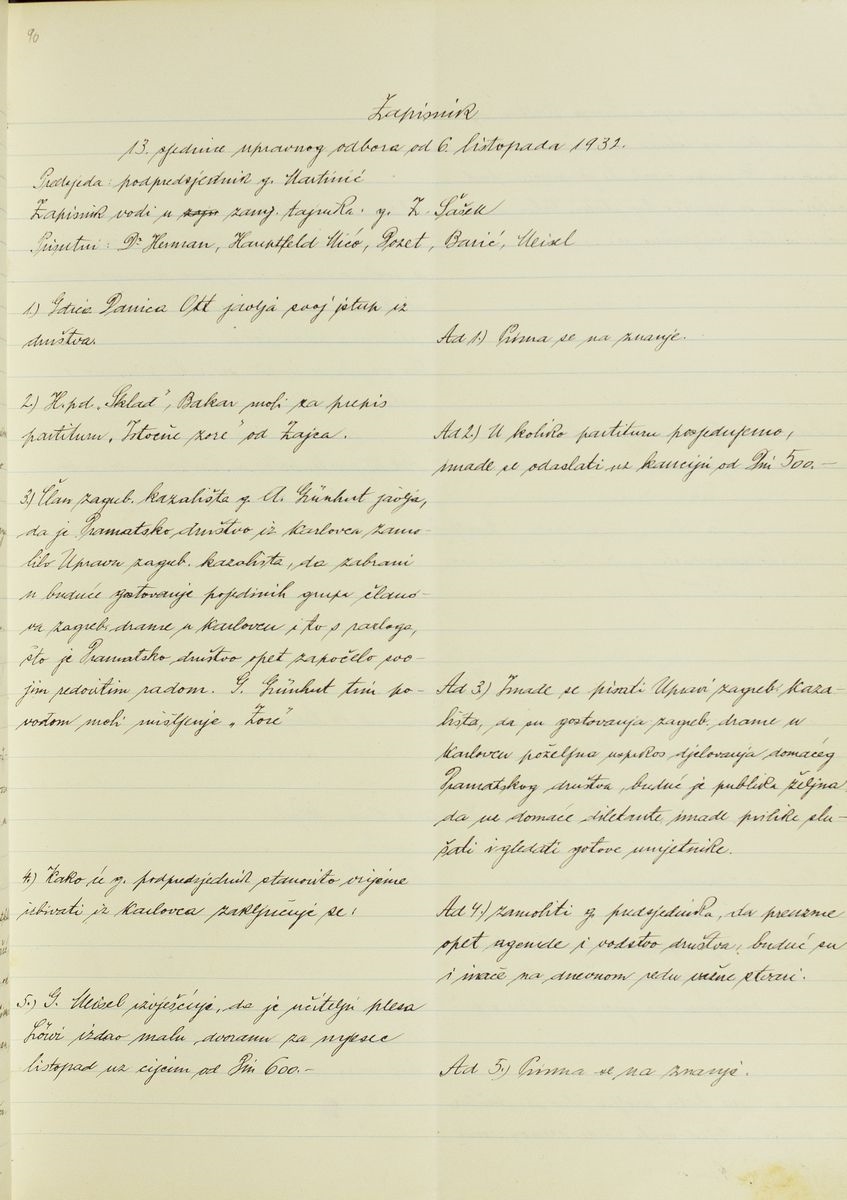 90
Zapisnik
13. sjednice upravnog odbora od 6. listopada 1932.
Predsjeda: podpredsjednik g. Martinić
Zapisnik vodi u zapr zamj. tajnika: g. Z. Šašek
Prisutni: Dr Herman, Hauptfeld Mićo, Pozet, Barić, Meisel
1.) Gdica Danica Ott javlja svoj istup iz
društva.
Ad 1.) Prima se na znanje.
2.) H.p.d. „Sklad", Bakar moli za prepis
partituru „Istočne zore" od Zajca.
Ad 2.) U koliko partituru posjedujemo,
imade se odaslati uz kauciju od Din 500.—
3.) Član zagreb. kazališta g. A. Grünhut javlja,
da je Dramatsko društvo iz Karlovca zamo-
lilo Upravu zagreb. kazališta, da zabrani
u buduće gostovanje pojedinih grupa člano-
va zagreb. drame u Karlovcu i to s razloga,
što je Dramatsko društvo opet započelo svo-
jim redovitim radom. G. Grünhut tim po-
vodom moli mišljenje „Zore"
Ad 3.) Imade se pisati Upravi zagreb. kaza-
lišta, da su gostovanja zagreb. drame u
Karlovcu poželjna usprkos djelovanja domaćeg
Dramatskog društva, buduć je publika željna
da uz domaće diletante, imade prilike slu-
šati i gledati gotove umjetnike.
4.) Kako će g. podpredsjednik stanovito vrijeme
izbivati iz Karlovca zaključuje se:
Ad 4.) zamoliti g. predsjednika, da preuzme
opet agende i vodstvo društva, buduć su
i inače na dnevnom redu važne stvari.
5.) G. Meisel izvješćuje, da je učitelju plesa
Löwi izdao malu dvoranu za mjesec
listopad uz cijenu od Din 600.—
Ad 5.) Prima se na znanje.